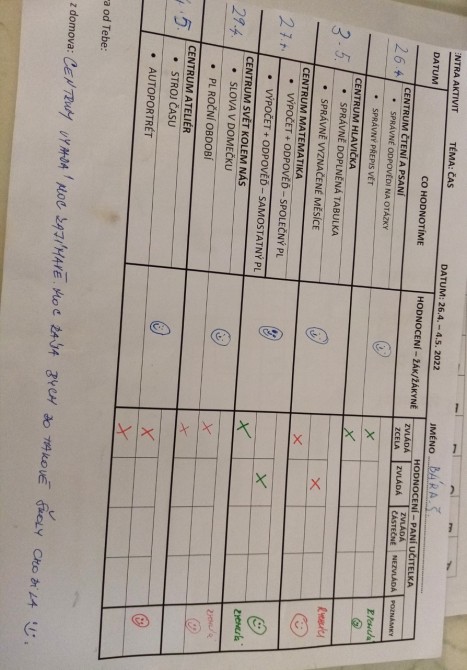 NTRA AKTIVIT TÉMA: ČAS DATUM: 26.4. – 4.5. 2022 JMÉNO BÁRA Š.
DATUM CO HODNOTÍME HODNOCENÍ – ŽÁK/ŽÁKYNĚ HODNOCENÍ – PANÍ UČITELKA
ZVLÁDÁ ZCELA ZVLÁDÁ ZVLÁDÁ ČÁSTEČNĚ NEZVLÁDÁ POZNÁMKY
26.4. CENTRUM ČTENÍ A PSANÍ
• SPRÁVNÉ ODPOVĚDI NA OTÁZKY
• SPRÁVNÝ PŘEPIS VĚT
3.5. CENTRUM HLAVIČKA
• SPRÁVNĚ DOPLNĚNÁ TABULKA
• SPRÁVNĚ VYZNAČENÉ MĚSÍCE
27.4. CENTRUM MATEMATIKA
• VÝPOČET + ODPOVĚĎ – SPOLEČNÝ PL
• VÝPOČET + ODPOVĚĎ – SAMOSTATNÝ PL
29.4. CENTRUM SVĚT KOLEM NÁS
• SLOVA V DOMEČKU
• PL ROČNÍ OBDOBÍ
4.5. CENTRUM ATELIÉR
• STROJ ČASU
• AUTOPORTRÉT
a od Tebe:
z domova: CENTRUM VÝHODA! MOC ZAJÍMAVÉ. MOC RÁDA BYCH DO TAKOVÉ ŠKOLY CHODILA